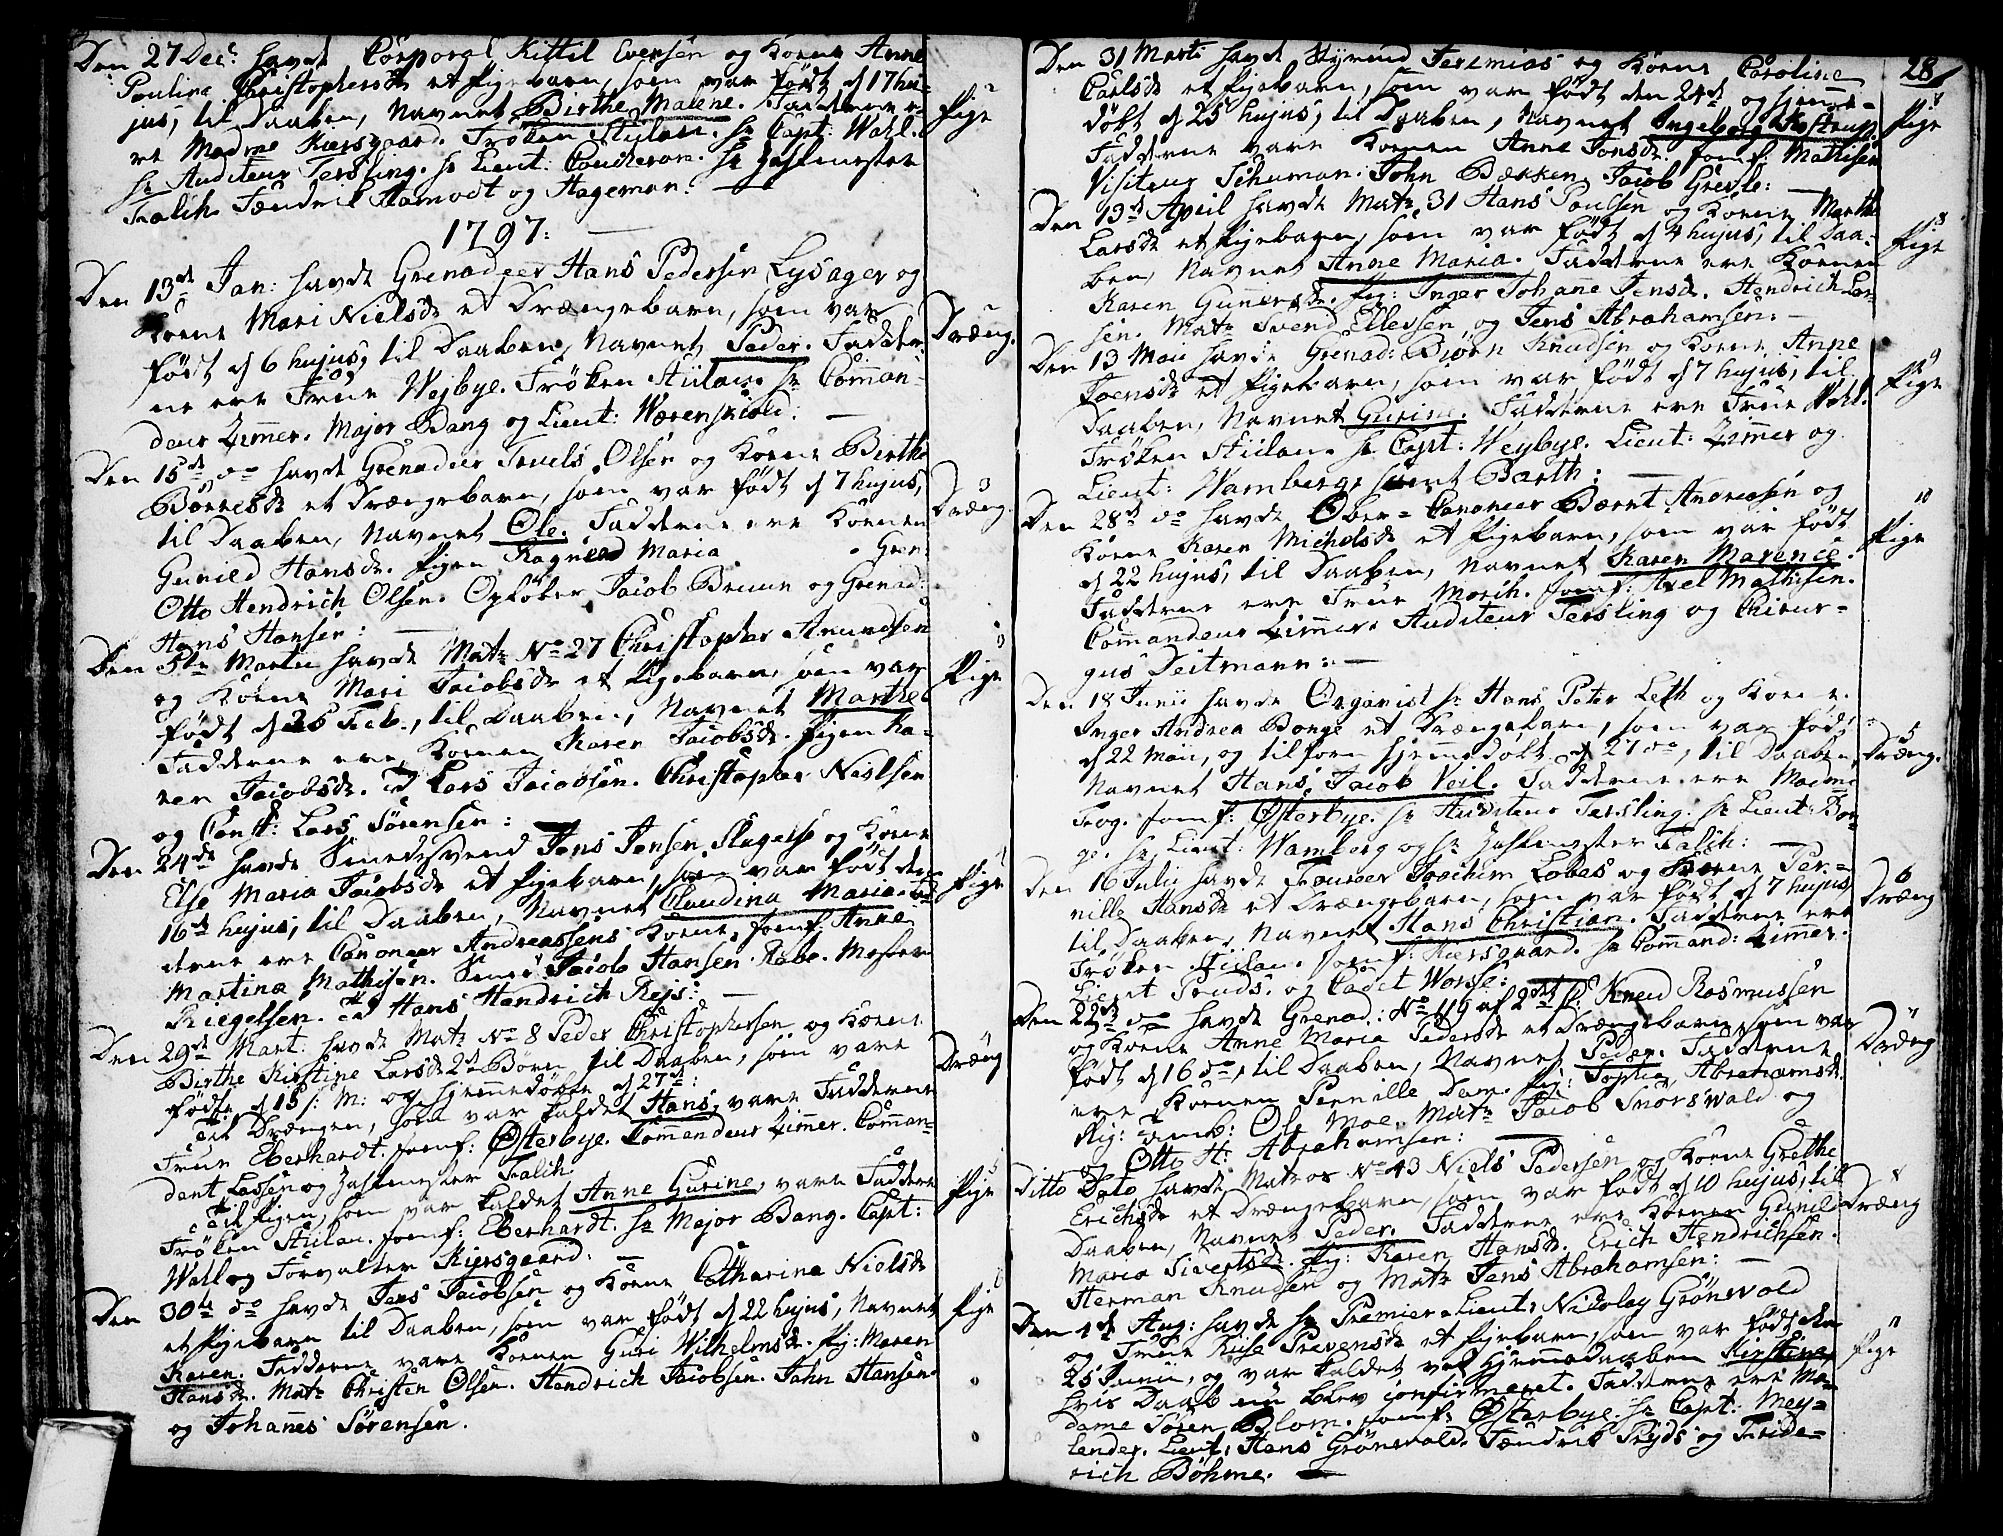 Den 27 Dec: havde Corporal Kittil Evensen og Kone Anne
Pauline Christophersdr et Pigebarn, som var født d 17 hu-
jus, til Daaben, Navnet Birthe Malene. Fadderne e-
re Madme Kiersgaar. Frøken Stulan. Hr Capt: Wahl.
Hr Auditeur Tersling. Hr Lieut: Coucheron. Hr
Falch. Fændrik Hamodt og Hageman.
Pige
1797:
Den 13de Jan: havde Grenadeer Hans Pedersen Lysager og
Kone Mari Nielsdr et Drængebarn, som var
født d 6 hujus, til Daaben, Navnet Peder. Fadder-
ne ere Frue Wejbye. Frøken Stulan. Hr Comman-
deur Zimmer. Major Bang og Lieut: Wærenskiold.
Dræng.
Den 15de do havde Grenadeer Truels Olsen og Kone Birthe
Børresdr et Drængebarn, som var født d 7 hujus,
til Daaben, Navnet Ole. Fadderne ere Konen
Gunild Hansdr. Pigen Ragnild Maria Gren:
Otto Hendrich Olsen. Opløber Jacob Bruun og Grenad:
Hans Hansen:
3
Dræng.
Den 5te Martii havde Matr No 27 Christopher Amundsen
og Kone Mari Jacobsdr et Pigebarn, som var
født d 25 Feb., til Daaben, Navnet Marthe
Fadderne ere, Konen Karen Jacobsdr. Pigen Ka-
ren Jacobsdr. Lars Jacobsen. Christopher Nielsen
og Const: Lars Sørensen:
Pige
Den 24de havde Smedesvend Jens Jensen Slagelse og Kone
Else Maria Jacobsdr et Pigebarn, som var født den
16de hujus, til Daaben, Navnet Claudina Maria. Fad-
derne ere Canoneer Andreassens Kone, Jomf: Anne
Martina Mathisen. Smed Jacob Hansen. Rebs. Mester
Riegelsen. Hans Hendrich Rejs:
Pige
Den 29de Mart: havde Matr No 8 Peder Christophersen og Kone
Birthe Kirstine Larsdr 2de Børn til Daaben, som vare
fødte d 15 s: M: og hjemmedøbte d 27de:
Til Drængen, som var kaldet Hans, vare Fadderne
Frue Eberhardt. Jomf: Østerbye. Commandeur Zimmer. Comman-
dant Lassen og Falch.
Til Pigen, som var kaldet Anne Gurine, vare Faddere
Frøken Stulan. Jomf: Eberhardt. Hr Major Bang. Capt:
Wahl og Forvalter Kiersgaard:
Dræng
Pige
Den 30te do havde Jens Jacobsen og Kone Catharina Nielsdr
et Pigebarn til Daaben, som var født d 22 hujus, Navnet
Karen. Fadderne vare Konen Guri Wilhelmsdr. Pig: Maren
Hansdr. Matr Christen Olsen. Hendrich Jacobsen. John Hansen
og Johannes Sørensen.
Pige
28
Den 31 Marti havde Styrmand Jeremias og Kone Caroline
Carlsdr et Pigebarn, som var født den 24de og hjemme-
døbt d 25 hujus, til Daaben, Navnet Ingeborg Kostrup.
Fadderne vare Konen Anne Jonsdr. Jomf: Mathisen
Visiteur Schuman. John Bækken. Jacob Grefle:
Pige
Den 13de April havde Matr 31 Hans Poulsen og Kone Marthe
Larsdr et Pigebarn, som var født d 4 hujus, til Daa-
ben, Navnet Anne Maria. Fadderne ere Konen
Karen Gunersdr. Pig: Inger Johane Jensdr. Hendrich Lar-
sen. Matr Svend Ellefsen, og Jens Abrahamsen:
8
Pige
Den 13 Maii havde Grenad: Biørn Knudsen og Kone Anne
Joensdr et Pigebarn, som var født d 7 hujus, til
Daaben, Navnet Gurine. Fadderne ere Frue Wahl.
Frøken Stulan. Hr Capt: Weybye. Lieut: Zimmer og
Lieut: Wamberg, samt Barth:
9
Pige
Den 28de do havde Ober-Canoneer Bærnt Andreasen og
Kone Karen Michelsdr et Pigebarn, som var født
d 22 hujus, til Daaben, Navnet Karen Marence.
Fadderne ere Frue Morch. Jomf: Axel Mathisen.
Commandeur Zimmer. Auditeur Tersling og Chirur-
gus Deitmann:
10
Pige
Den 18 Junii havde Organist Hr Hans Peter Leth og Kone
Inger Andrea Borge et Drængebarn, som var født
d 22 Maii, og tilforn hjemmedøbt d 27 do, til Daaben,
Navnet Hans Jacob Veil. Fadderne ere Madme
Frog. Jomf: Østerbye. Hr Auditeur Tersling. Hr Lieut: Bor-
ge. Hr Lieut: Wamberg og Hr Falch:
5
Dræng.
Den 16 Julii havde Tambour Joachim Lobes og Kone Per-
nille Hansdr et Drængebarn, som var født d 7 hujus,
til Daaben, Navnet Hans Christian. Fadderne ere
Frøken Stulan. Jomf: Kiersgaard. Hr Command: Zimmer.
Lieut Pruds. og Cadet Worsse:
6
Dræng
Den 22de do havde Grenad: No 119 af 2det C: Knud Rasmussen
og Kone Anne Maria Pedersdr et Drængebarn, som var
født d 16 do, til Daaben, Navnet Peder. Fadderne
ere Konen Pernille Dam. Pig: Sophia Abrahamsdr.
Pig: Tamb: Ole Moe. Matr Jacob Snorswald og
Otto H: Abrahamsen:
Dræng
Ditto Dato havde Matros No 43 Niels Pedersen og Kone Grethe
Erichsdr et Drængebarn, som var født d 10 hujus, til
Daaben, Navnet Peder. Fadderne ere Konen Gunild
Maria Sivertsdr. Pig: Karen Hansdr. Erich Hendrichsen.
Herman Knudsen og Matr Jens Abrahamsen:
8
Dræng
Den 1de Aug: havde Hr Premier-Lieut: Nicolay Grønvold
og Frue Kuse Prevensdr et Pigebarn, som var født den
25 Junii, og var kaldet ved Hjemmedaaben Kirstine,
hvis Daab nu blev confirmeret. Fadderne ere Ma-
dame Søren Blom. Jomf: Østerbye. Hr Capt: Mey-
lender. Lieut: Hans Grønvold. Fændrik Pryds og Fride-
rich Böhme.
11
Pige